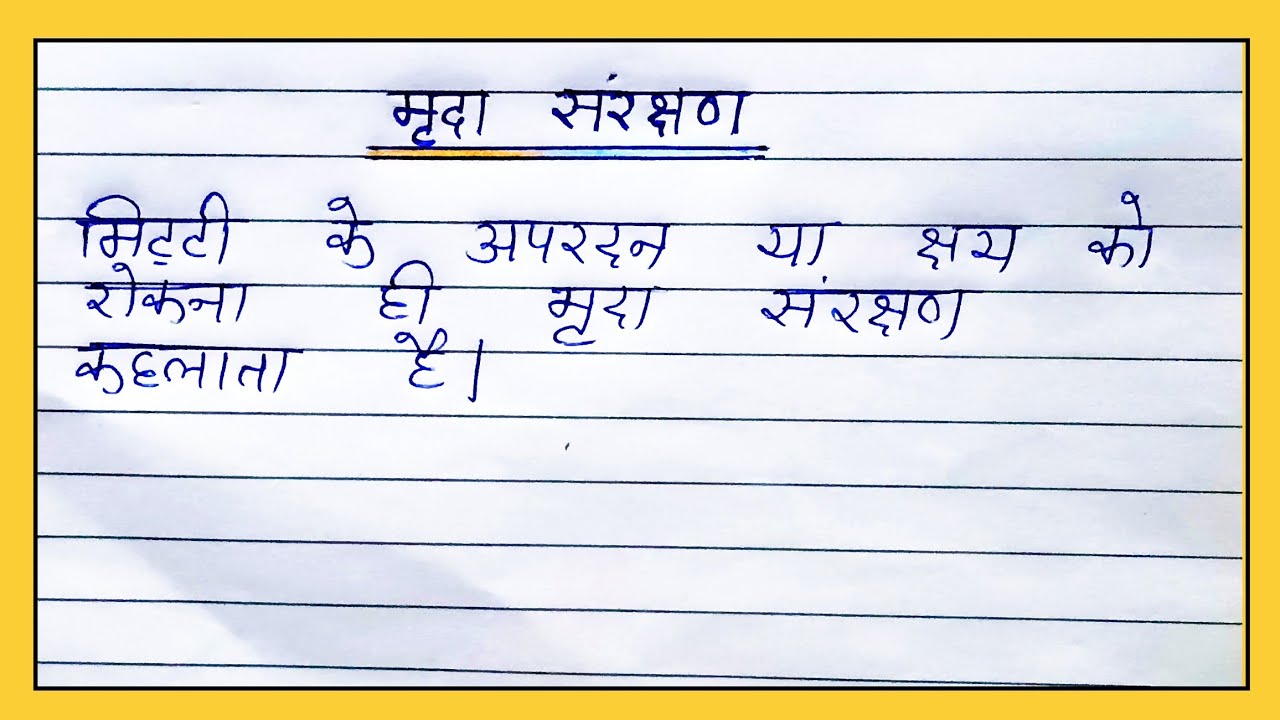 मृदा संरक्षण
मिट्टी के अपरदन या क्षय को
रोकना ही मृदा संरक्षण
कहलाता है।